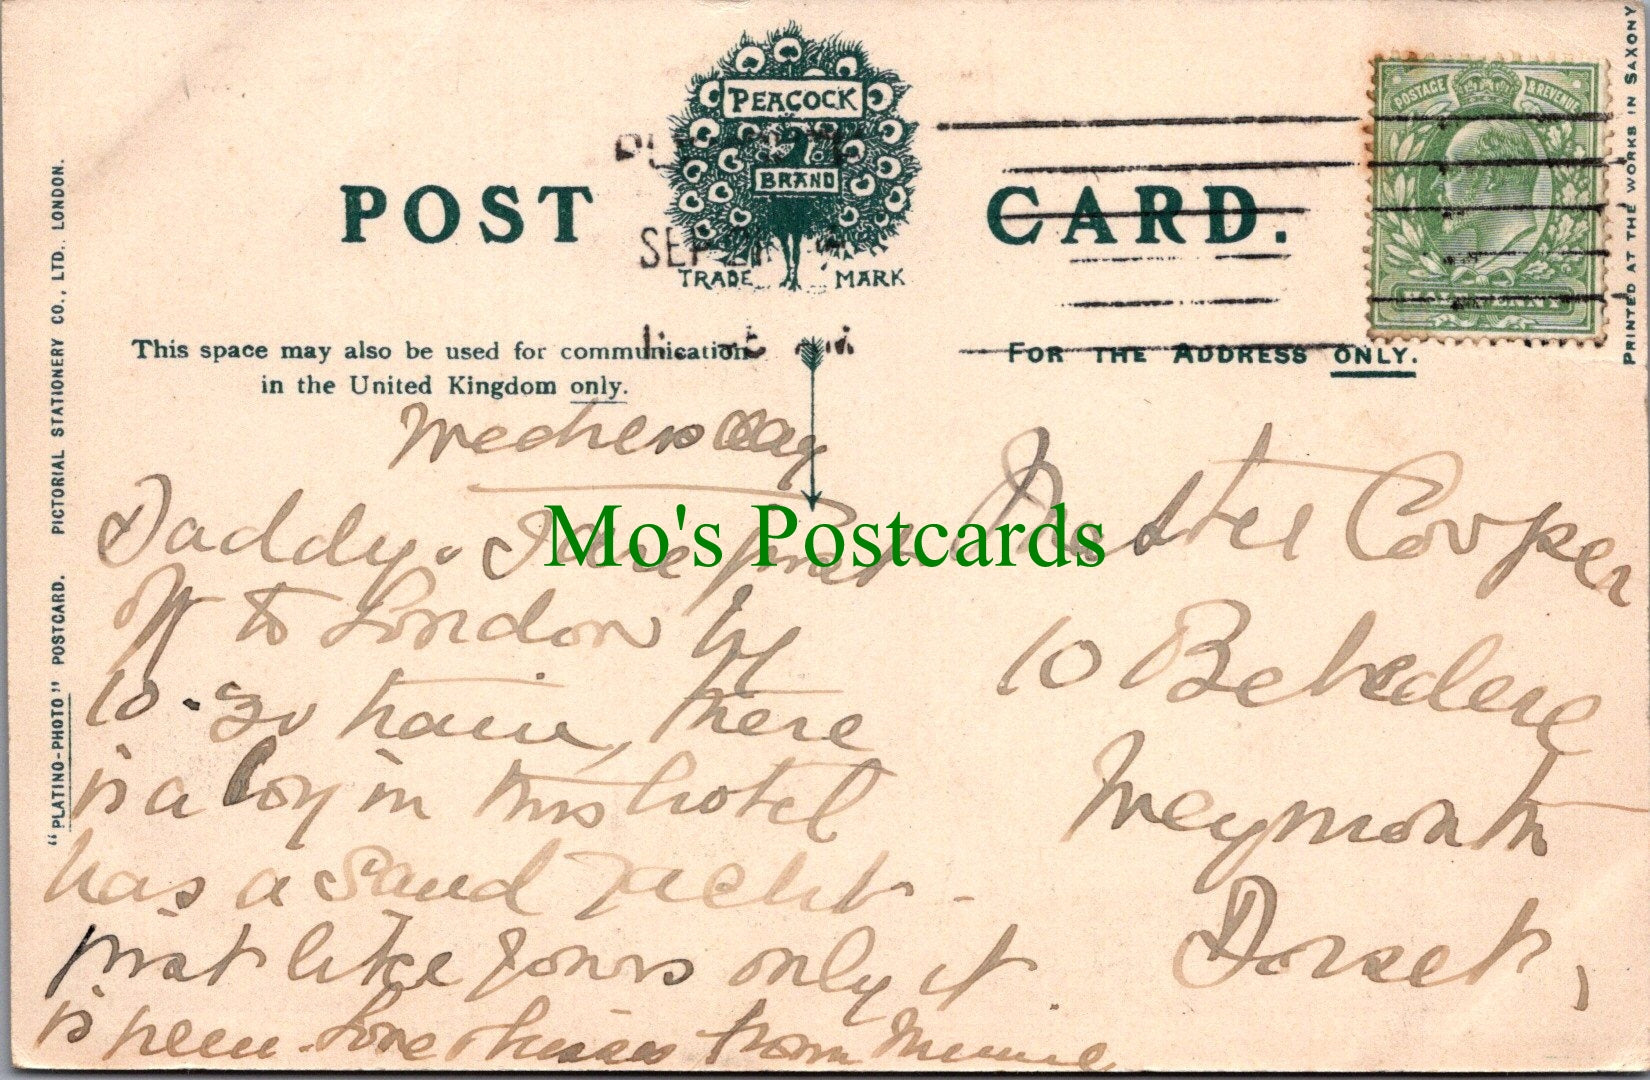 POST CARD.
PEACOCK
BRAND
TRADE MARK
SEP 21
POSTAGE & REVENUE
This space may also be used for communication
in the United Kingdom only.
FOR THE ADDRESS ONLY.
"PLATINO-PHOTO" POSTCARD. PICTORIAL STATIONERY CO., LTD. LONDON.
PRINTED AT THE WORKS IN SAXONY
Wednesday
Daddy & I are just
off to London by
10.30 train, there
is a boy in this hotel
has a sand yacht -
just like yours only it
is green. Love & kisses from
Master Cooper
10 Belvedere
Weymouth
Dorset,
Mo's Postcards